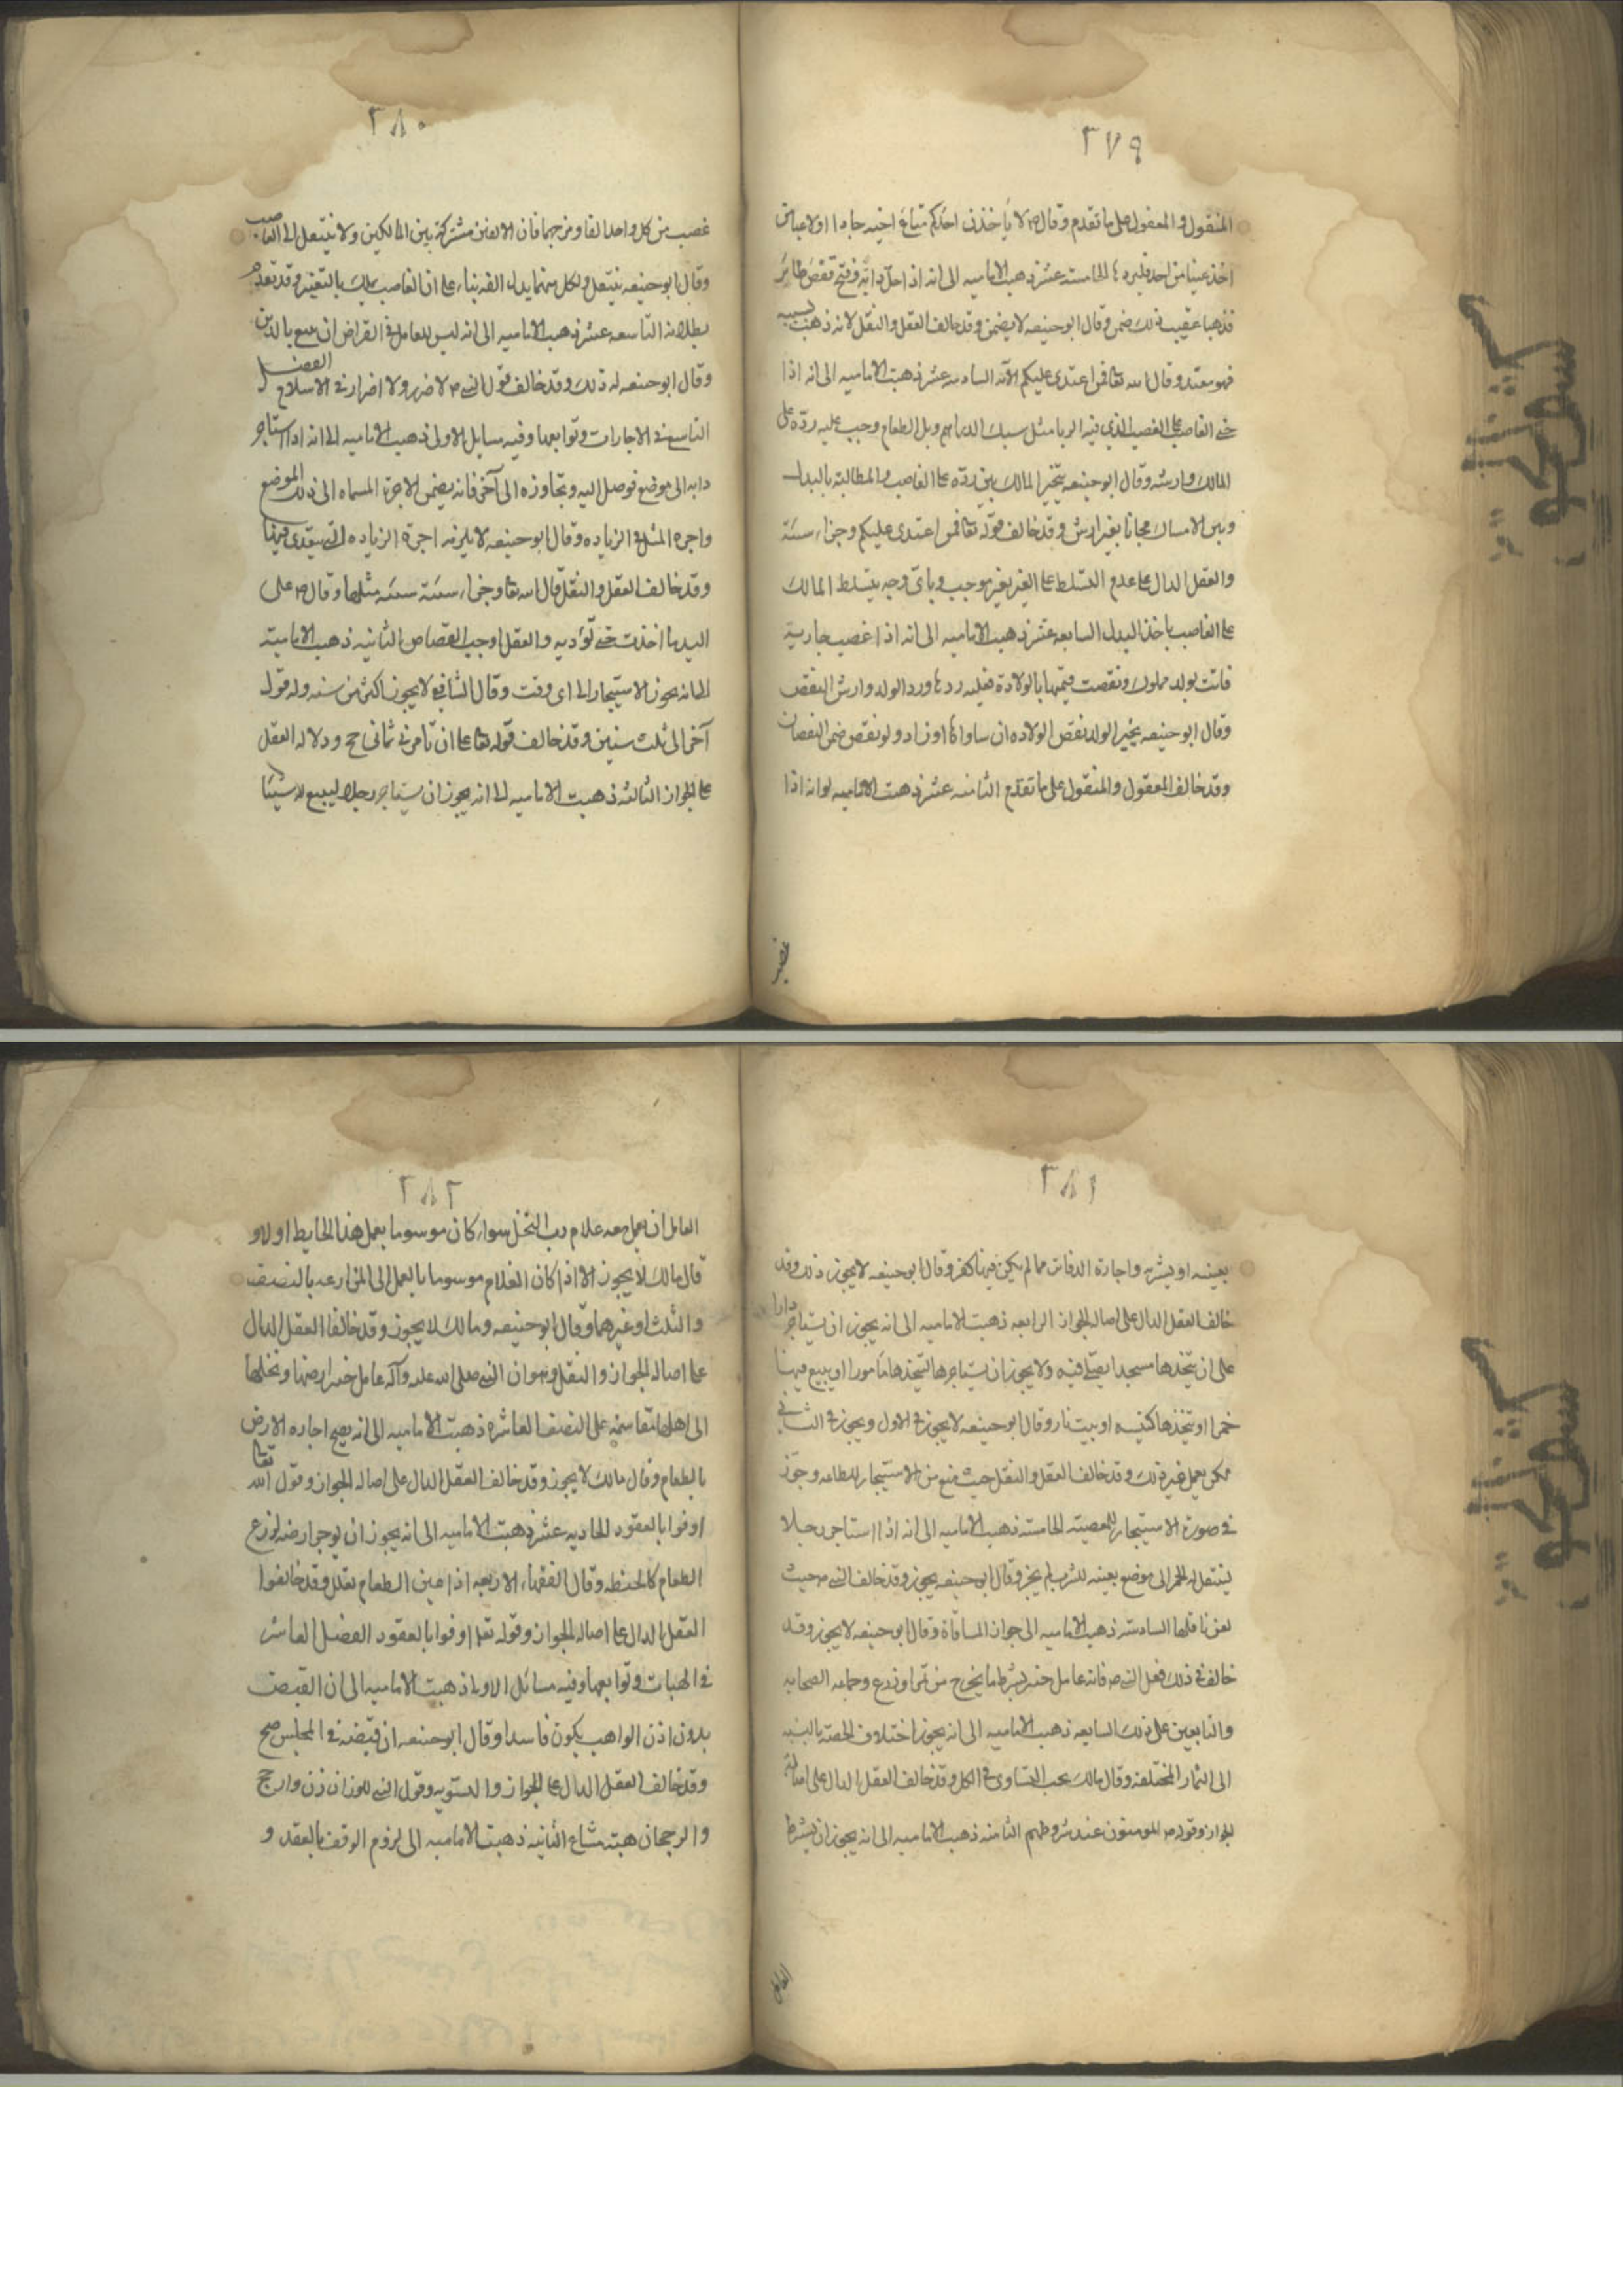 ٢٧٩
المنقول والمعقول على ما تقدم وقال ص لا ياخذن احدكم متاع اخيه جادا او لاعبا من
اخذ عينا من احد فليردها الخامسة عشر ذهبت الامامیه الى انه اذا حل دابة او فتح قفص طاير
فذهبا عقيب ذلك ضمن وقال ابو حنيفه لا يضمن وقد خالف العقل والنقل لانه ذهبت بسببه
فهو معتد وقال الله تعا فمن اعتدى عليكم الآيه السادسه عشر ذهبت الامامیه الى انه اذا
جنى الغاصب على الغصب الذي فيه الربا مثل سبك الدراهم وبل الطعام وجب عليه رده على
المالك وارشه وقال ابو حنيفه يتخير المالك بين رده على الغاصب والمطالبة بالبدل
وبين الامساك مجانا بغير ارش وقد خالف قوله تعا فمن اعتدى عليكم وجزاء سيئة
والعقل الدال على عدم التسلط على الغير بغير موجب وباى وجه يتسلط المالك
على الغاصب باخذ البدل السابعه عشر ذهبت الامامیه الى انه اذا غصب جارية
فاتت بولد مملوك ونقصت قيمتها بالولادة فعليه ردها ورد الولد وارش النقص
وقال ابو حنيفه يجبر الولد نقص الولاده ان ساواها او زاد ولو نقص ضمن النقصان
وقد خالف المعقول والمنقول على ما تقدم الثامنه عشر ذهبت الامامیه لو انه اذا
غصب
٢٨٠
غصب من كل واحد الفا ومزجهما فان الالفين مشتركة بين المالكين ولا ينتقل الى الغاصب
وقال ابو حنيفه ينتقل ولكل منهما بدل الفه بناء على ان الغاصب يملك بالتغير وقد تقدم
بطلانه التاسعه عشر ذهبت الامامیه الى انه ليس للعامل في القراض ان يبيع بالدين
وقال ابو حنيفه له ذلك وقد خالف قول النبي ص لا ضرر ولا اضرار في الاسلام الفصل
التاسع في الاجارات وتوابعها وفيه مسايل الاولى ذهبت الامامیه الى انه اذا استاجر
دابه الى موضع فوصل اليه وتجاوزه الى آخر فانه يضمن الاجرة المسماه الى ذلك الموضع
واجرة المثل في الزياده وقال ابو حنيفه لا يلزمه اجرة الزياده التي يتعدى فيها
وقد خالف العقل والنقل قال الله تعا وجزاء سيئة سيئة مثلها وقال ص على
اليد ما اخذت حتى تؤديه والعقل اوجب القصاص الثانيه ذهبت الامامية
الى انه يجوز الاستيجار الى اى وقت وقال الشافعي لا يجوز اكثر من سنه وله قول
آخر الى ثلث سنين وقد خالف قوله تعا على ان تاجرني ثماني حجج ودلاله العقل
على الجواز الثالثه ذهبت الامامیه الى انه يجوز ان يستاجر رجلا ليبيع له شيئا
٢٨١
بعينه او يشتريه واجارة الدفاتر ما لم يكن فيها كفر وقال ابو حنيفه لا يجوز ذلك وقد
خالف العقل الدال على اصاله الجواز الرابعه ذهبت الامامیه الى انه يجوز ان يستاجر دارا
على ان يتخذها مسجدا يصلي فيه ولا يجوز ان يستاجرها ليتخذها ماخورا او يبيع فيها
خمرا او يتخذها كنيسه او بيت نار وقال ابو حنيفه لا يجوز في الاول ويجوز في الثاني
لكن يعمل غير ذلك وقد خالف العقل والنقل حيث منع من الاستيجار للطاعه وجوز
في صورة الاستيجار للمعصية الخامسه ذهبت الامامیه الى انه اذا استاجر رجلا
لينقل له الخمر الى موضع بعينه للشرب لم يجز وقال ابو حنيفه يجوز وقد خالف النبي ص حيث
لعن ناقلها السادسه ذهبت الامامیه الى جواز المساقاة وقال ابو حنيفه لا يجوز وقد
خالف في ذلك فعل النبي ص فانه عامل خيبر بشرط ما يخرج من ثمر او زرع وجماعه الصحابه
والتابعين على ذلك السابعه ذهبت الامامیه الى انه يجوز اختلاف الحصة بالنسبه
الى الثمار المختلفه وقال مالك يجب التساوي في الكل وقد خالف العقل الدال على اصالة
الجواز وقوله ص المومنون عند شروطهم الثامنه ذهبت الامامیه الى انه يجوز ان يشترط
العامل
٢٨٢
العامل ان يعمل معه غلام رب النخل سواء كان موسوما بعمل هذا الحايط او لا و
قال مالك لا يجوز الا اذا كان الغلام موسوما بالعمل الى المزارعه بالنصف
والثلث او غيرهما وقال ابو حنيفه ومالك لا يجوز وقد خالفا العقل الدال
على اصاله الجواز والنقل وهو ان النبي صلى الله عليه وآله عامل خيبر ارضها ونخلها
الى اهلها مقاسمة على النصف العاشره ذهبت الامامیه الى انه يصح اجاره الارض
بالطعام وقال مالك لا يجوز وقد خالف العقل الدال على اصاله الجواز وقول الله تعا
اوفوا بالعقود الحاديه عشر ذهبت الامامیه الى انه يجوز ان يوجر ارضه لزرع
الطعام كالحنطه وقال الفقهاء الاربعه اذا عين الطعام بطل وقد خالفوا
العقل الدال على اصاله الجواز وقوله تعا اوفوا بالعقود الفصل العاشر
في الهبات وتوابعها وفيه مسائل الاولى ذهبت الامامیه الى ان القبض
بدون اذن الواهب يكون فاسدا وقال ابو حنيفه ان قبضه في المجلس صح
وقد خالف العقل الدال على الجواز والتسويه وقول النبي للوزان زن وارجح
والرجحان هبة مشاع الثانيه ذهبت الامامیه الى لزوم الوقف بالعقد و